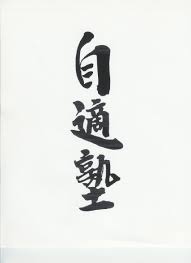 自適塾